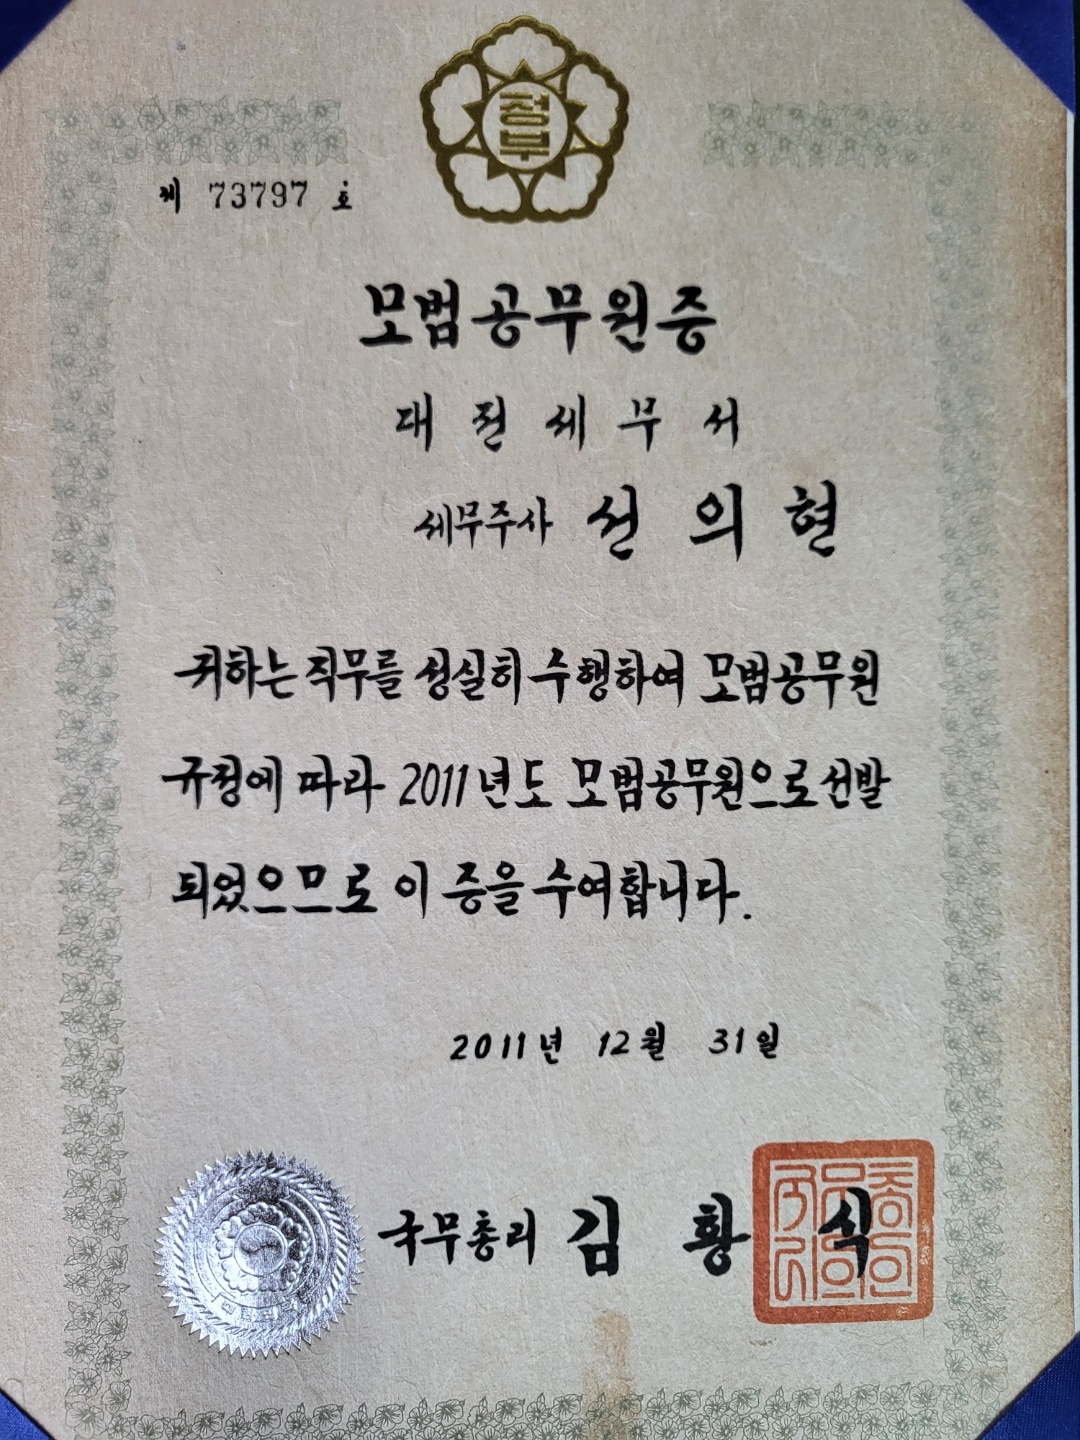 정부
제 73797 호
모범공무원증
대전세무서
세무주사 선의현
귀하는 직무를 성실히 수행하여 모범공무원
규정에 따라 2011년도 모범공무원으로 선발
되었으므로 이 증을 수여합니다.
2011년 12월 31일
국무총리 김황식
국무총리의인